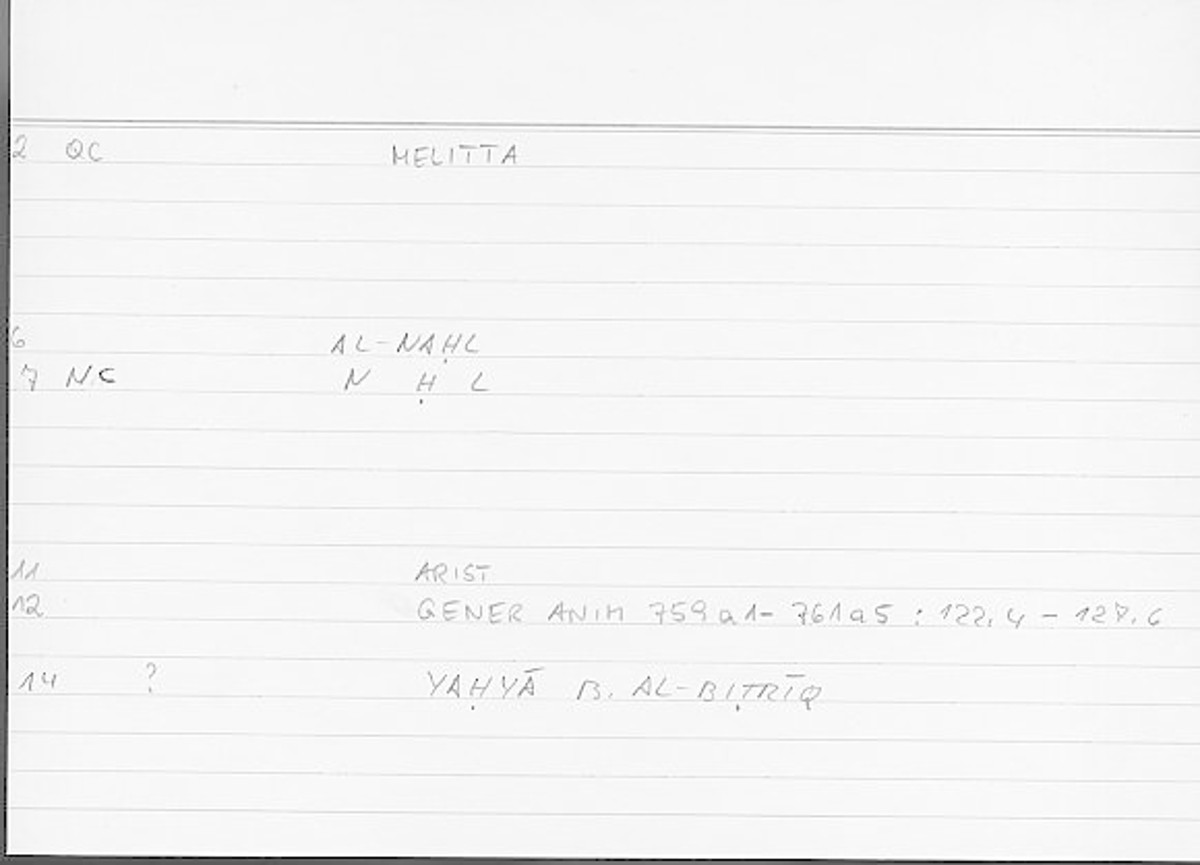 2 QC MELITTA
6 AL-NAḤL
7 NC N Ḥ L
11 ARIST
12 GENER ANIM 759a1- 761a5 : 122,4 - 127.6
14 ? YAḤYĀ B. AL-BIṬRĪQ